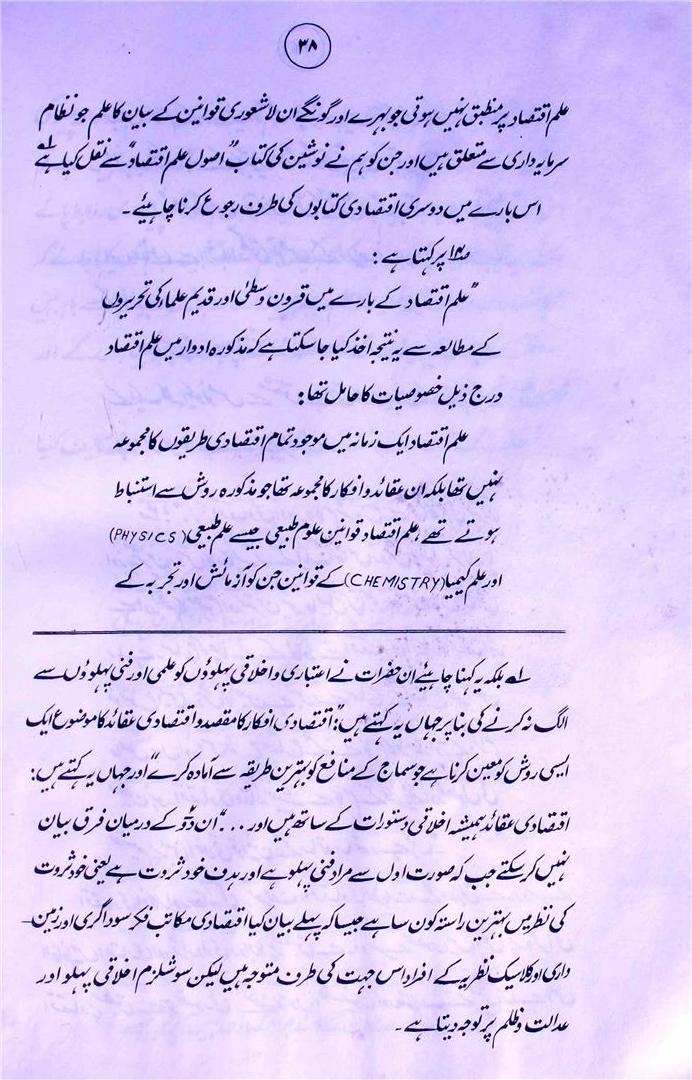 ۳۸
علم اقتصاد پر منطبق نہیں ہوتی جو بہرے اور گونگے ان لاشعوری قوانین کے بیان کا علم جو نظام
سرمایہ داری سے متعلق ہیں اور جن کو ہم نے نوشین کی کتاب "اصول علم اقتصاد" سے نقل کیا ہے لہ
اس بارے میں دوسری اقتصادی کتابوں کی طرف رجوع کرنا چاہیئے۔
پر کہتا ہے :
"علم اقتصاد کے بارے میں قرون وسطیٰ اور قدیم علما کی تحریروں
کے مطالعہ سے یہ نتیجہ اخذ کیا جا سکتا ہے کہ مذکورہ ادوار میں علم اقتصاد
درج ذیل خصوصیات کا حامل تھا :
علم اقتصاد ایک زمانہ میں موجود تمام اقتصادی طریقوں کا مجموعہ
نہیں تھا بلکہ ان عقائد و افکار کا مجموعہ تھا جو مذکورہ روش سے استنباط
ہوتے تھے، علم اقتصاد قوانین علوم طبیعی جیسے علم طبیعی (PHYSICS)
اور علم کیمیا (CHEMISTRY) کے قوانین جن کو آزمائش اور تجربہ کے
لہ بلکہ یہ کہنا چاہیئے ان حضرات نے اعتباری و اخلاقی پہلوؤں کو علمی اور فنی پہلوؤں سے
الگ نہ کرنے کی بنا پر جہاں یہ کہتے ہیں : "اقتصادی افکار کا مقصد و اقتصادی عقائد کا موضوع ایک
ایسی روش کو معین کرنا ہے جو سماج کے منافع کو بہترین طریقہ سے آمادہ کرے" اور جہاں یہ کہتے ہیں :
اقتصادی عقائد ہمیشہ اخلاقی دستورات کے ساتھ ہیں اور ... "ان دو کے درمیان فرق بیان
نہیں کر سکتے جب کہ صورت اول سے مراد فنی پہلو ہے اور ہدف خود ثروت ہے یعنی خود ثروت
کی نظر میں بہترین راستہ کون سا ہے جیسا کہ پہلے بیان کیا اقتصادی مکاتب فکر سوداگری اور زمین-
داری اور کلاسیک نظریہ کے افراد اس جہت کی طرف متوجہ ہیں لیکن سوشلزم اخلاقی پہلو اور
عدالت و ظلم پر توجہ دیتا ہے۔